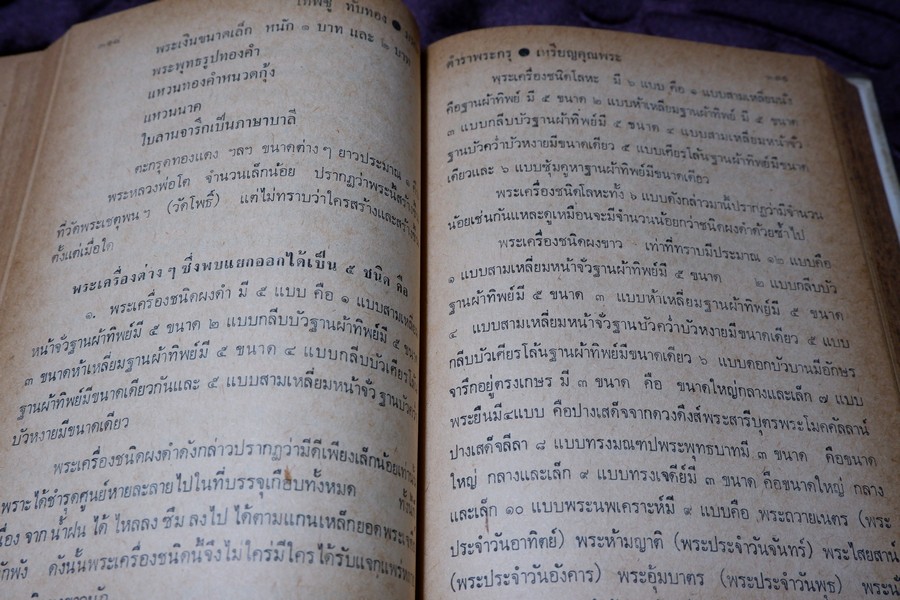 เทพชู ทับทอง ●
๓๑๘
พระเงินขนาดเล็ก หนัก ๑ บาท และ ๒ บาท
พระพุทธรูปทองคำ
แหวนทองคำหนวดกุ้ง
แหวนนาค
ใบลานจารึกเป็นภาษาบาลี
ตะกรุดทองแดง ฯลฯ ขนาดต่าง ๆ ยาวประมาณ ๑
พระหลวงพ่อโต จำนวนเล็กน้อย ปรากฏว่าพระนี้สร้าง
ที่วัดพระเชตุพนฯ (วัดโพธิ์) แต่ไม่ทราบว่าใครสร้างและสร้าง
ตั้งแต่เมื่อใด
พระเครื่องต่าง ๆ ซึ่งพบแยกออกได้เป็น ๕ ชนิด คือ
๑. พระเครื่องชนิดผงดำ มี ๕ แบบ คือ ๑ แบบสามเหลี่ยม
หน้าจั่วฐานผ้าทิพย์มี ๕ ขนาด ๒ แบบกลีบบัวฐานผ้าทิพย์มี ๕ ขนาด
๓ ขนาดห้าเหลี่ยมฐานผ้าทิพย์มี ๕ ขนาด ๔ แบบกลีบบัวเศียรโล้น
ฐานผ้าทิพย์มีขนาดเดียวกันและ ๕ แบบสามเหลี่ยมหน้าจั่ว ฐานบัวคว่ำ
บัวหงายมีขนาดเดียว
พระเครื่องชนิดผงดำดังกล่าวปรากฏว่ามีดีเพียงเล็กน้อยเท่านั้น
เพราะได้ชำรุดศูนย์หายละลายไปในที่บรรจุเกือบทั้งหมด ทั้งนี้
เนื่อง จาก น้ำฝน ได้ ไหลลง ซึม ลงไป ได้ตามแกนเหล็กยอดพระเจดีย์
หักพัง ดังนั้นพระเครื่องชนิดนี้จึงไม่ใคร่มีใครได้รับแจกแพร่
ตำราพระกรุ ● เหรียญคุณพระ
๓๑๙
พระเครื่องชนิดโลหะ มี ๖ แบบ คือ ๑ แบบสามเหลี่ยมหน้า
คือฐานผ้าทิพย์ มี ๕ ขนาด ๒ แบบห้าเหลี่ยมฐานผ้าทิพย์ มี ๕ ขนาด
๓ แบบกลีบบัวฐานผ้าทิพย์มี ๕ ขนาด ๔ แบบสามเหลี่ยมหน้าจั่ว
ฐานบัวคว่ำบัวหงายมีขนาดเดียว ๕ แบบเศียรโล้นฐานผ้าทิพย์มีขนาด
เดียวและ ๖ แบบซุ้มคูหาฐานผ้าทิพย์มีขนาดเดียว
พระเครื่องชนิดโลหะทั้ง ๖ แบบดังกล่าวมานี้ปรากฏว่ามีจำนวน
น้อยเช่นกันและดูเหมือนจะมีจำนวนน้อยกว่าชนิดผงดำด้วยซ้ำไป
พระเครื่องชนิดผงขาว เท่าที่ทราบมีประมาณ ๑๒ แบบคือ
๑ แบบสามเหลี่ยมหน้าจั่วฐานผ้าทิพย์มี ๕ ขนาด ๒ แบบกลีบบัว
ฐานผ้าทิพย์มี ๕ ขนาด ๓ แบบห้าเหลี่ยมฐานผ้าทิพย์มี ๕ ขนาด
๔ แบบสามเหลี่ยมหน้าจั่วฐานบัวคว่ำบัวหงายมีขนาดเดียว ๕ แบบ
กลีบบัวเศียรโล้นฐานผ้าทิพย์มีขนาดเดียว ๖ แบบดอกบัวบานมีอักษร
จารึกอยู่ตรงเกษร มี ๓ ขนาด คือ ขนาดใหญ่กลางและเล็ก ๗ แบบ
พระยืนมี๔แบบ คือปางเสด็จจากดาวดึงส์พระสารีบุตรพระโมคคัลลาน์
ปางเสด็จลีลา ๘ แบบทรงมณฑปพระพุทธบาทมี ๓ ขนาด คือขนาด
ใหญ่ กลางและเล็ก ๙ แบบทรงเจดีย์มี ๓ ขนาด คือขนาดใหญ่ กลาง
และเล็ก ๑๐ แบบพระนพเคราะห์มี ๙ แบบคือ พระถวายเนตร (พระ
ประจำวันอาทิตย์) พระห้ามญาติ (พระประจำวันจันทร์) พระไสยาสน์
(พระประจำวันอังคาร) พระอุ้มบาตร (พระประจำวันพุธ)